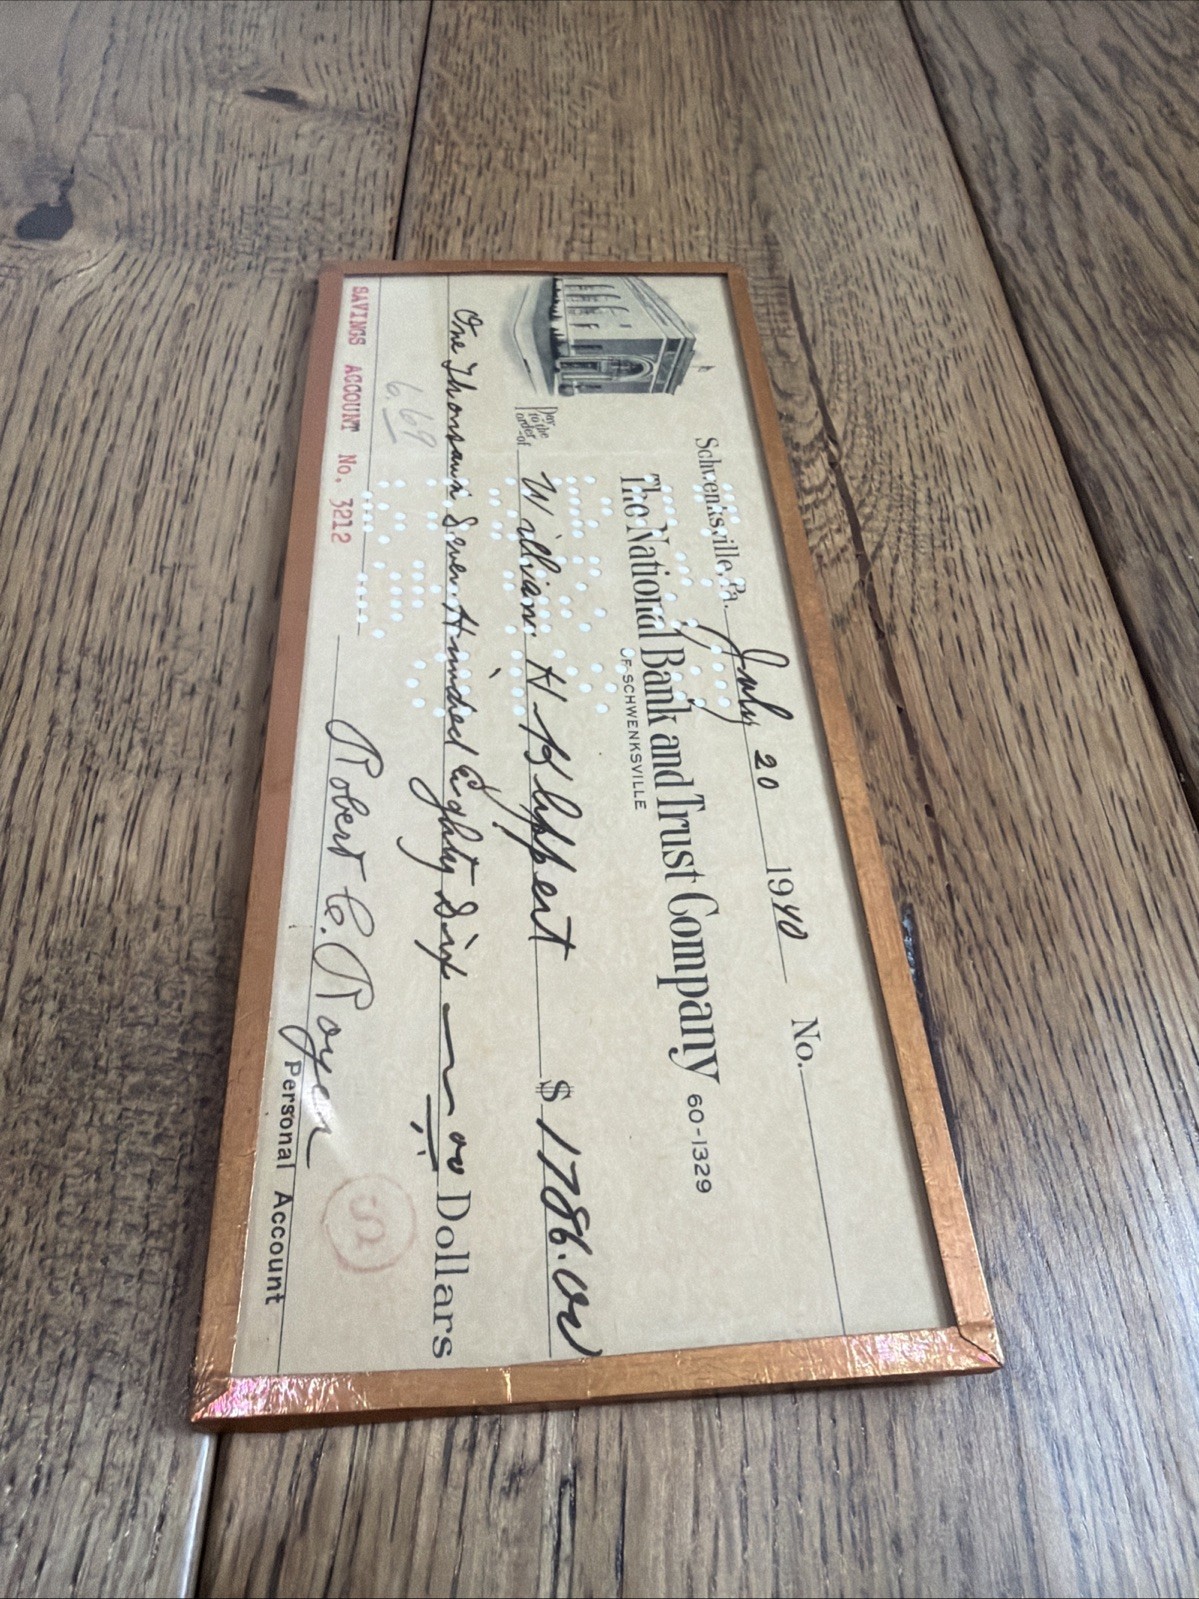 Schwenksville, Pa. July 20 1940 No.
The National Bank and Trust Company 60-1329
OF SCHWENKSVILLE
Pay to the order of William H Hippert $ 1786.00
One Thousand Seven Hundred Eighty Six 00 Dollars
6.69
Robert C. Royer
SAVINGS ACCOUNT No. 3212
Personal Account